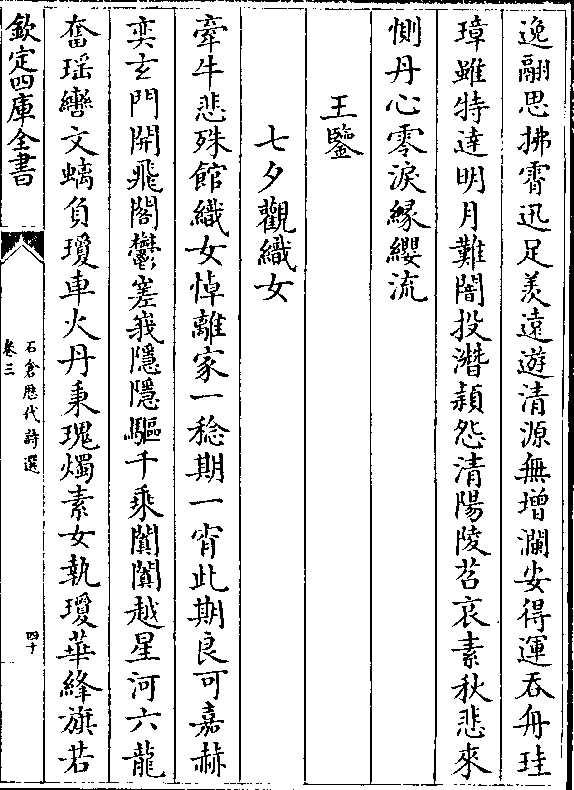 逸翮思拂霄迅足羡逺遊清源無增瀾安得運吞舟珪
璋雖特達明月難闇投潛穎怨清陽陵苕哀素秋悲來
惻丹心零淚縁纓流
王鑒
七夕觀織女
牽牛悲殊館織女悼離家一稔期一宵此期良可嘉赫
奕玄門開飛閣鬱嵯峩隱隱驅千乗闐闐越星河六龍
奮瑶轡文螭負瓊車火丹秉瑰燭素女執瓊華絳旗若
欽定四庫全書
石倉歴代詩選
卷三
四十